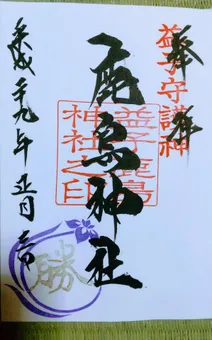 奉拝
益子守護神
鹿島神社
益子鹿島
神社之印
平成二十九年正月
勝